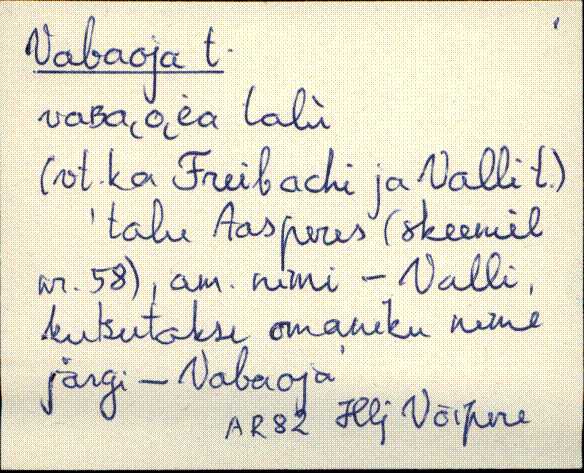 Vabaoja t.
vaʙa͔o͔è̬a talù
(vt. ka Freibachi ja Valli t.)
talu Aasperes (skeemil
nr. 58), am. nimi – Valli,
kutsutakse omaniku nime
järgi – Vabaoja
AR82 Hlj Võipere